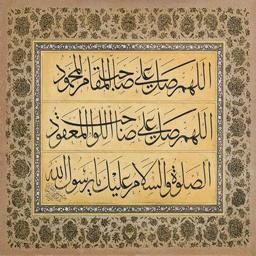 اللهم صل على صاحب المقام المحمود
اللهم صل على صاحب اللواء المعقود
الصلوة والسلام عليك يا رسول الله